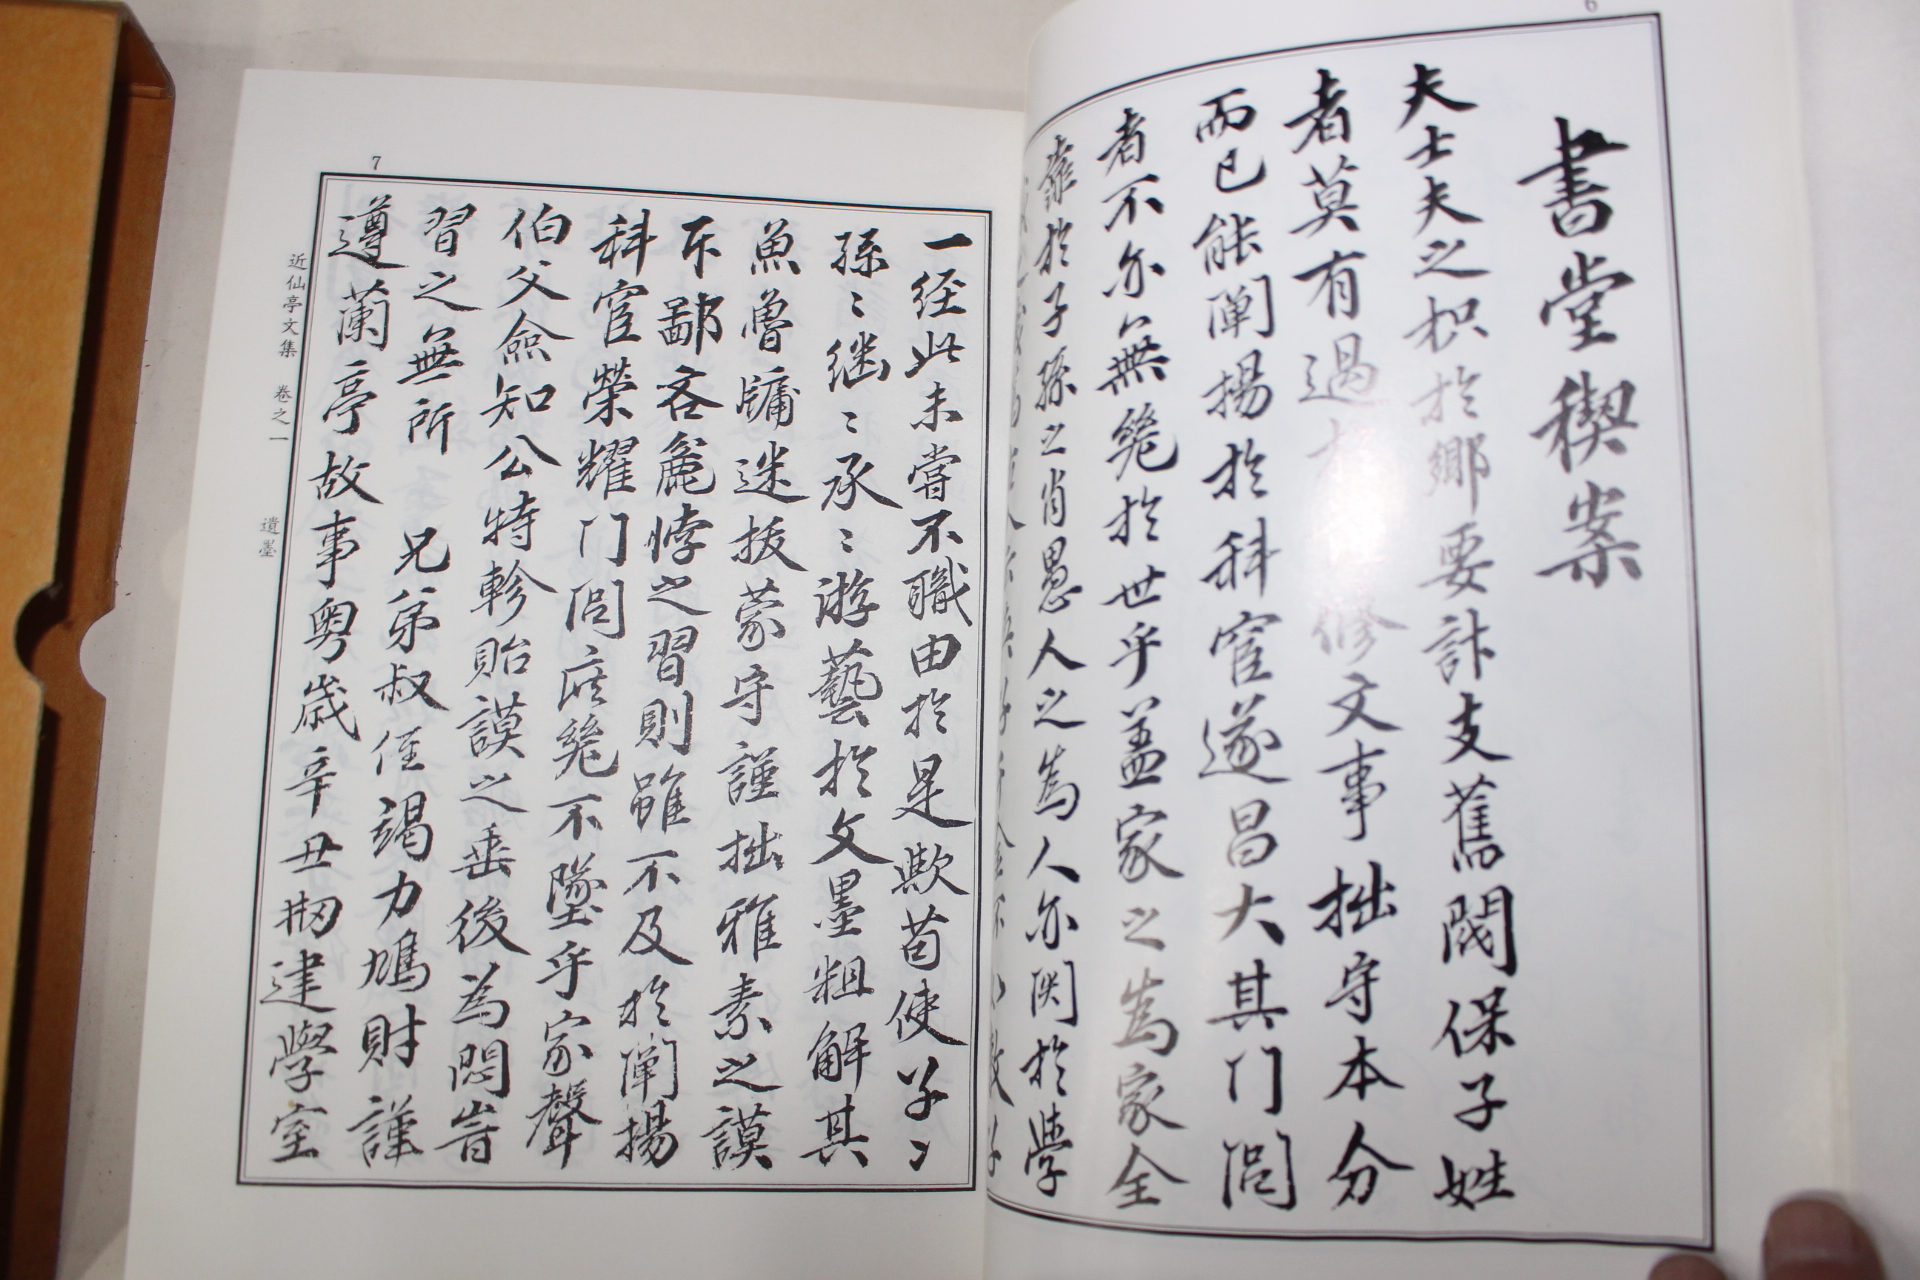 6
書堂稧案
夫士夫之枳於鄉要計支舊閥保子姓
者莫有過於修文事拙守本分
而已能闡揚於科宦遂昌大其門閭
者不亦無毙於世乎盖家之為家全
靠於子孫之肖愚人之為人亦関於學
7
一経此未嘗不職由於是歟苟使子〻
孫〻継〻承〻游藝於文墨粗解其
魚魯牖迷拔蒙守謹拙雅素之謨
斥鄙吝麁悖之習則雖不及於闡揚
科宦榮耀門閭庶毙不墜乎家聲
伯父僉知公特軫貽謨之垂後為悶
習之無所 兄弟叔侄竭力鳩財謹
遵蘭亭故事粤歳辛丑刱建學室
近仙亭文集 卷之一 遺墨